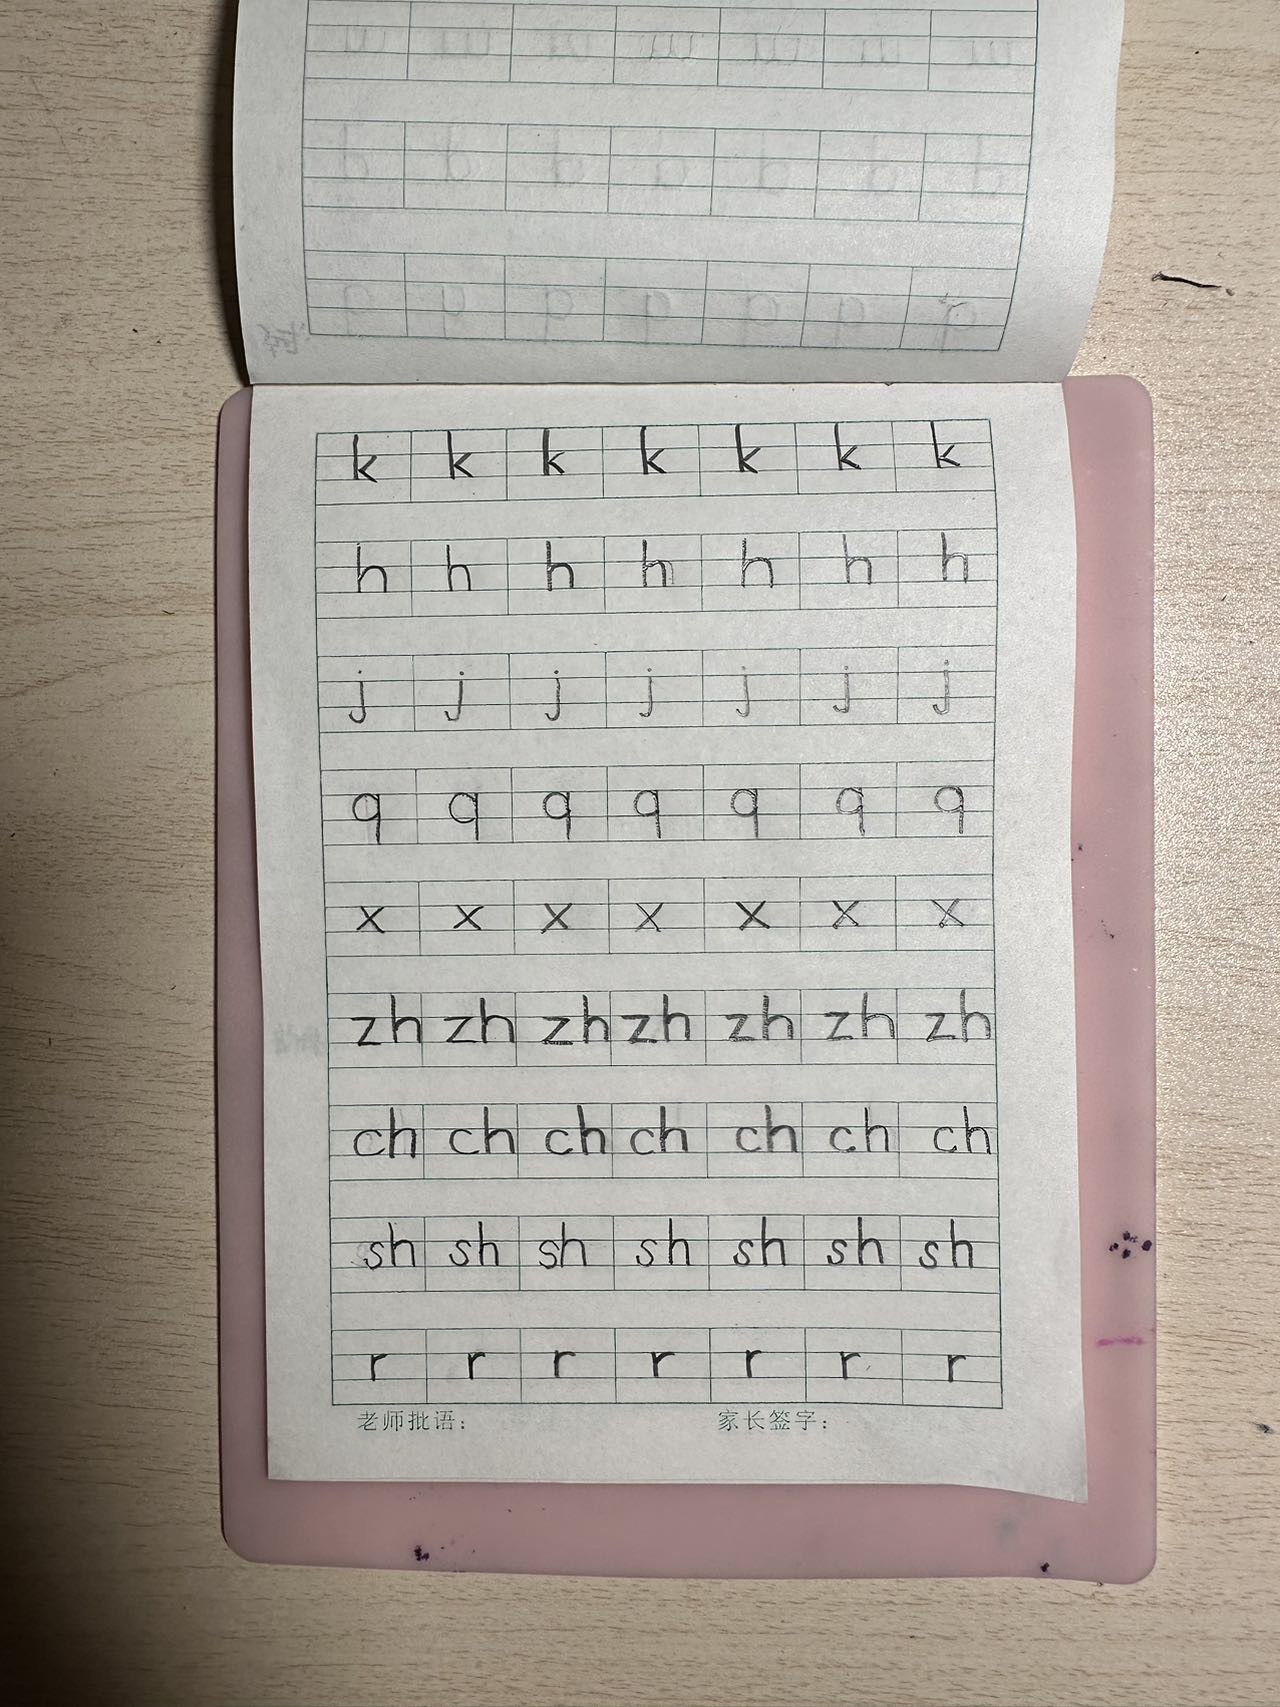 k k k k k k k
h h h h h h h
j j j j j j j
q q q q q q q
x x x x x x x
zh zh zh zh zh zh zh
ch ch ch ch ch ch ch
sh sh sh sh sh sh sh
r r r r r r r
老师批语： 家长签字：